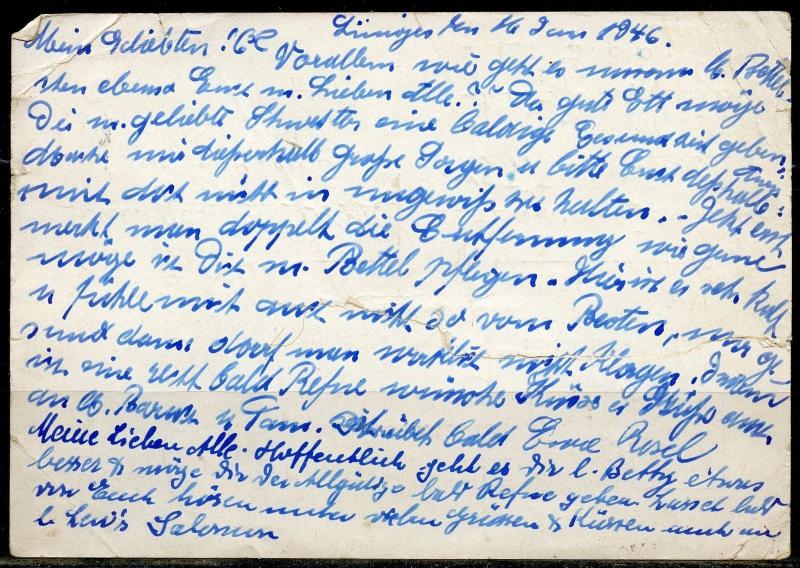 den 16 Jan 1946.
Mein Geliebten! Vorallem wie geht es unserm lb. Bettel-
chen ebenso Euch m. Lieben Alle? Der gute Gtt möge
Dir m. geliebte Schwester eine baldige Gesundheit geben,
mir dieserhalb große Sorgen u bitte Euch deßhalb
mich doch nicht im ungewiß zu halten. - Jetzt erst
merkt man doppelt die Entfernung wie gerne
möge ich Dich m. Bettel pflegen. Hier ist es sehr kalt
u fühle mich auch nicht so vom Besten, nur ge-
sund dann darf man wirklich nicht klagen.
eine recht bald Refue wünsche Küsse u Grüße auch
an lb. Baruch u Fam. Schreibet bald Eure Rosel
Meine Lieben Alle. Hoffentlich geht es dir l. Betty etwas
besser & möge Dir der Allgütige bald Refue geben. Lasset bald
von Euch hören unter vielen Grüssen & Küssen auch an
l. Levi's Salomon